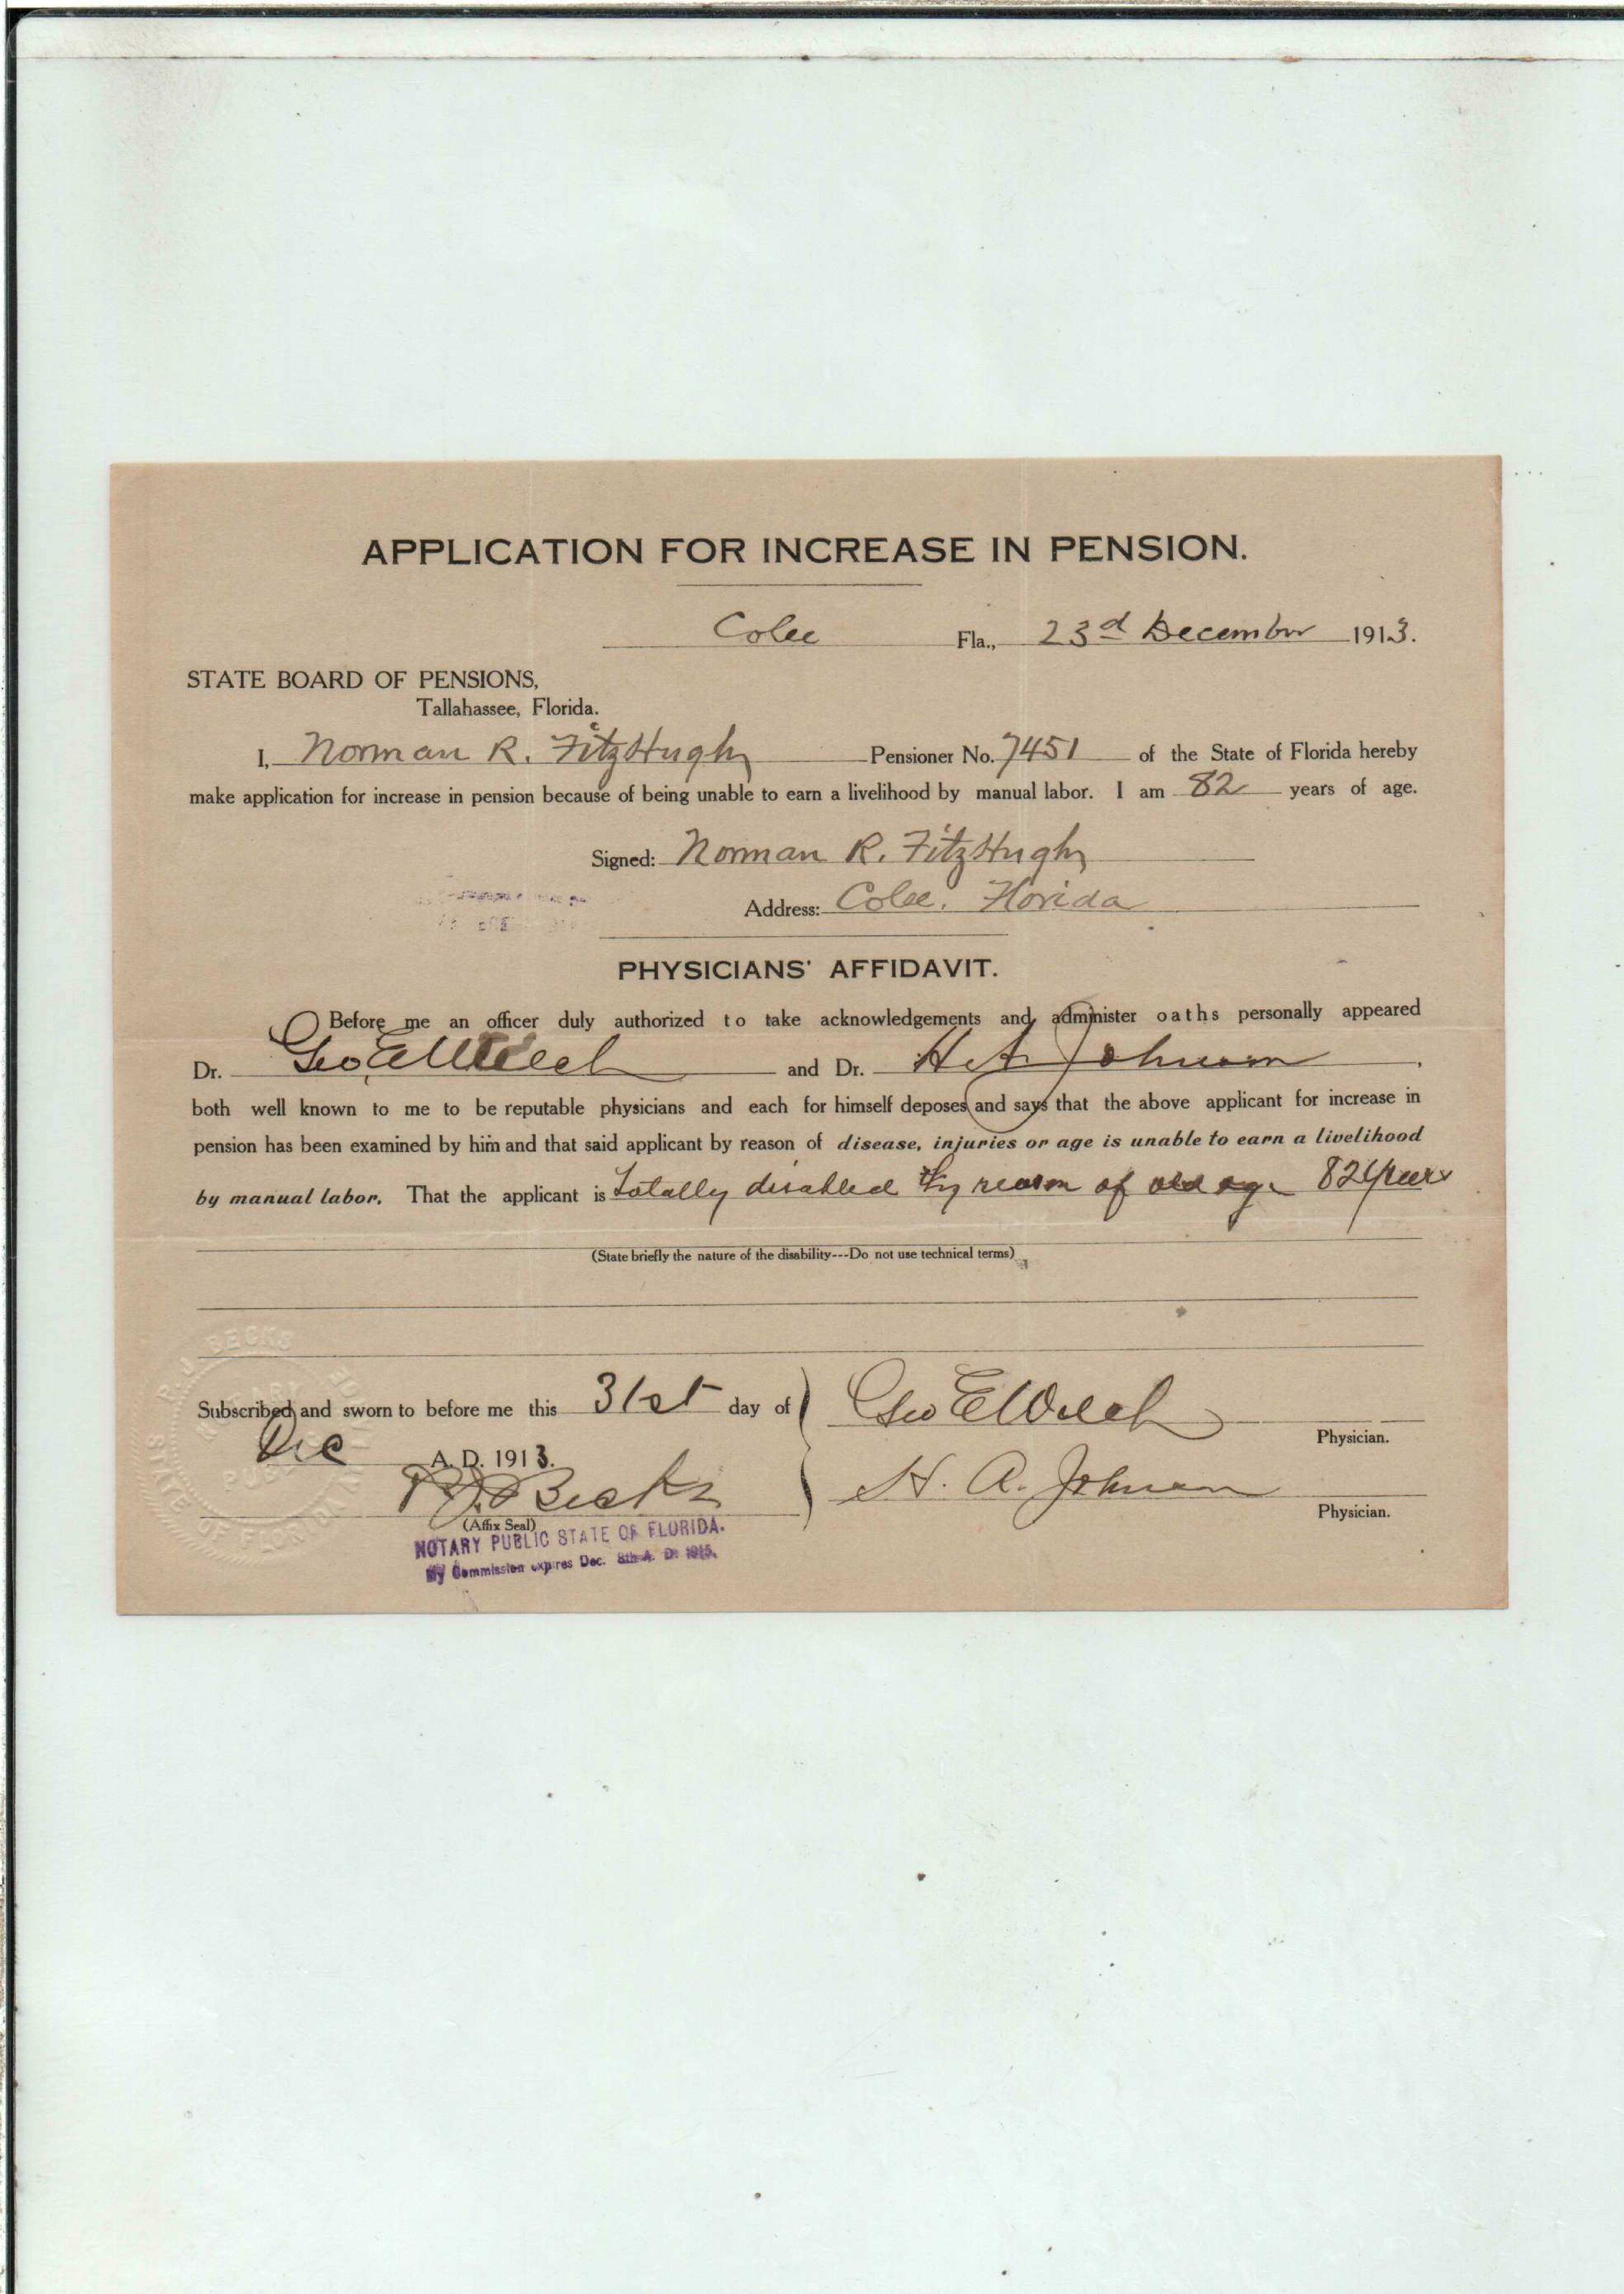 APPLICATION FOR INCREASE IN PENSION.
Colee Fla., 23d December 1913.
STATE BOARD OF PENSIONS,
Tallahassee, Florida.
I, Norman R. FitzHugh Pensioner No. 7451 of the State of Florida hereby
make application for increase in pension because of being unable to earn a livelihood by manual labor. I am 82 years of age.
Signed: Norman R. FitzHugh
Address: Colee, Florida
PHYSICIANS' AFFIDAVIT.
Before me an officer duly authorized to take acknowledgements and administer oaths personally appeared
Dr. Geo E Welch and Dr. H A Johnson
both well known to me to be reputable physicians and each for himself deposes and says that the above applicant for increase in
pension has been examined by him and that said applicant by reason of disease, injuries or age is unable to earn a livelihood
by manual labor. That the applicant is totally disabled by reason of old age 82 years
(State briefly the nature of the disability---Do not use technical terms)
Subscribed and sworn to before me this 31st day of
Dec A. D. 1913.
Geo E Welch
Physician.
R J Becks
H. A. Johnson
Physician.
(Affix Seal)
NOTARY PUBLIC STATE OF FLORIDA.
My Commission expires Dec. 8th A. D. 1915.
R. J. BECKS
NOTARY PUBLIC
STATE OF FLORIDA